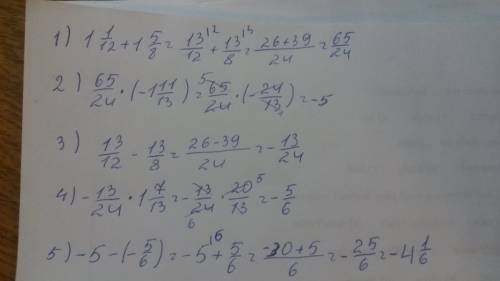 1) 1 1/12 + 1 5/8 = 13/12 + 13/8 = (26+39)/24 = 65/24
2) 65/24 · (-1 11/13) = 65/24 · (-24/13) = -5
3) 13/12 - 13/8 = (26-39)/24 = -13/24
4) -13/24 · 1 7/13 = -13/24 · 20/13 = -5/6
5) -5 - (-5/6) = -5 + 5/6 = (-30+5)/6 = -25/6 = -4 1/6